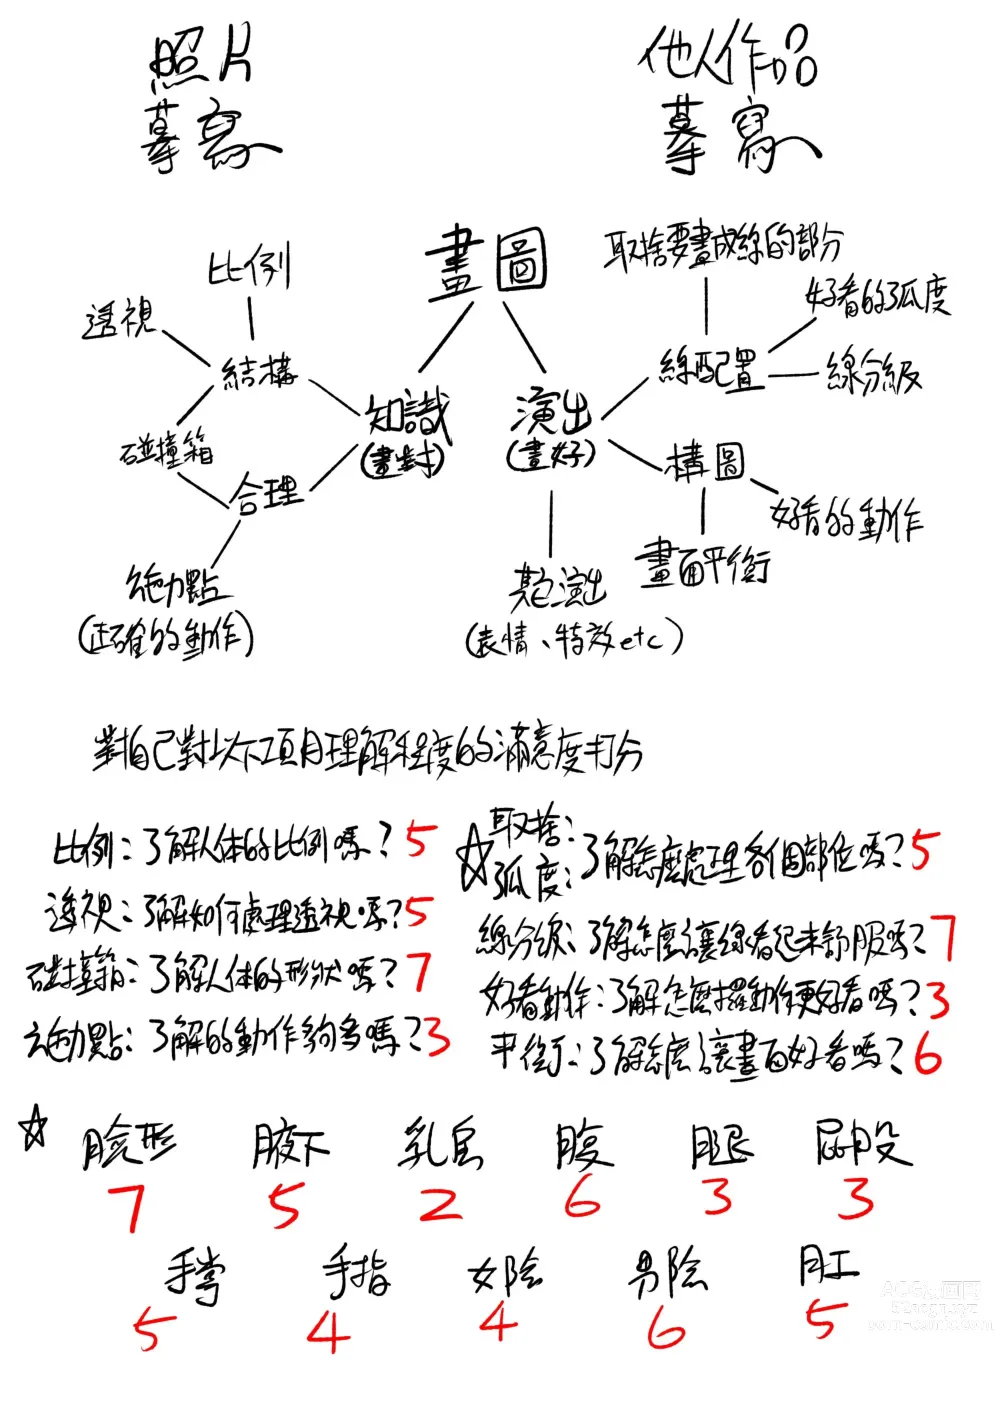 照片
摹寫
他人作品
摹寫
畫圖
比例
透視
結構
知識
(畫對)
碰撞箱
合理
施力點
(正確的動作)
取捨要畫成線的部分
好看的弧度
線配置
線分級
演出
(畫好)
構圖
好看的動作
畫面平衡
演出
(表情、特效etc)
對自己對以下項目理解程度的滿意度打分
比例：了解人体的比例嗎？5
透視：了解如何處理透視嗎？5
碰撞箱：了解人体的形狀嗎？7
施力點：了解的動作夠多嗎？3
☆取捨：
弧度：了解怎麼處理各個部位嗎？5
線分級：了解怎麼讓線看起來舒服嗎？7
好看動作：了解怎麼擺動作更好看嗎？3
平衡：了解怎麼讓畫面好看嗎？6
☆ 臉形 腋下 乳房 腹 腿 屁股
7 5 2 6 3 3
手掌 手指 女陰 男陰 肛
5 4 4 6 5
ACG资源网